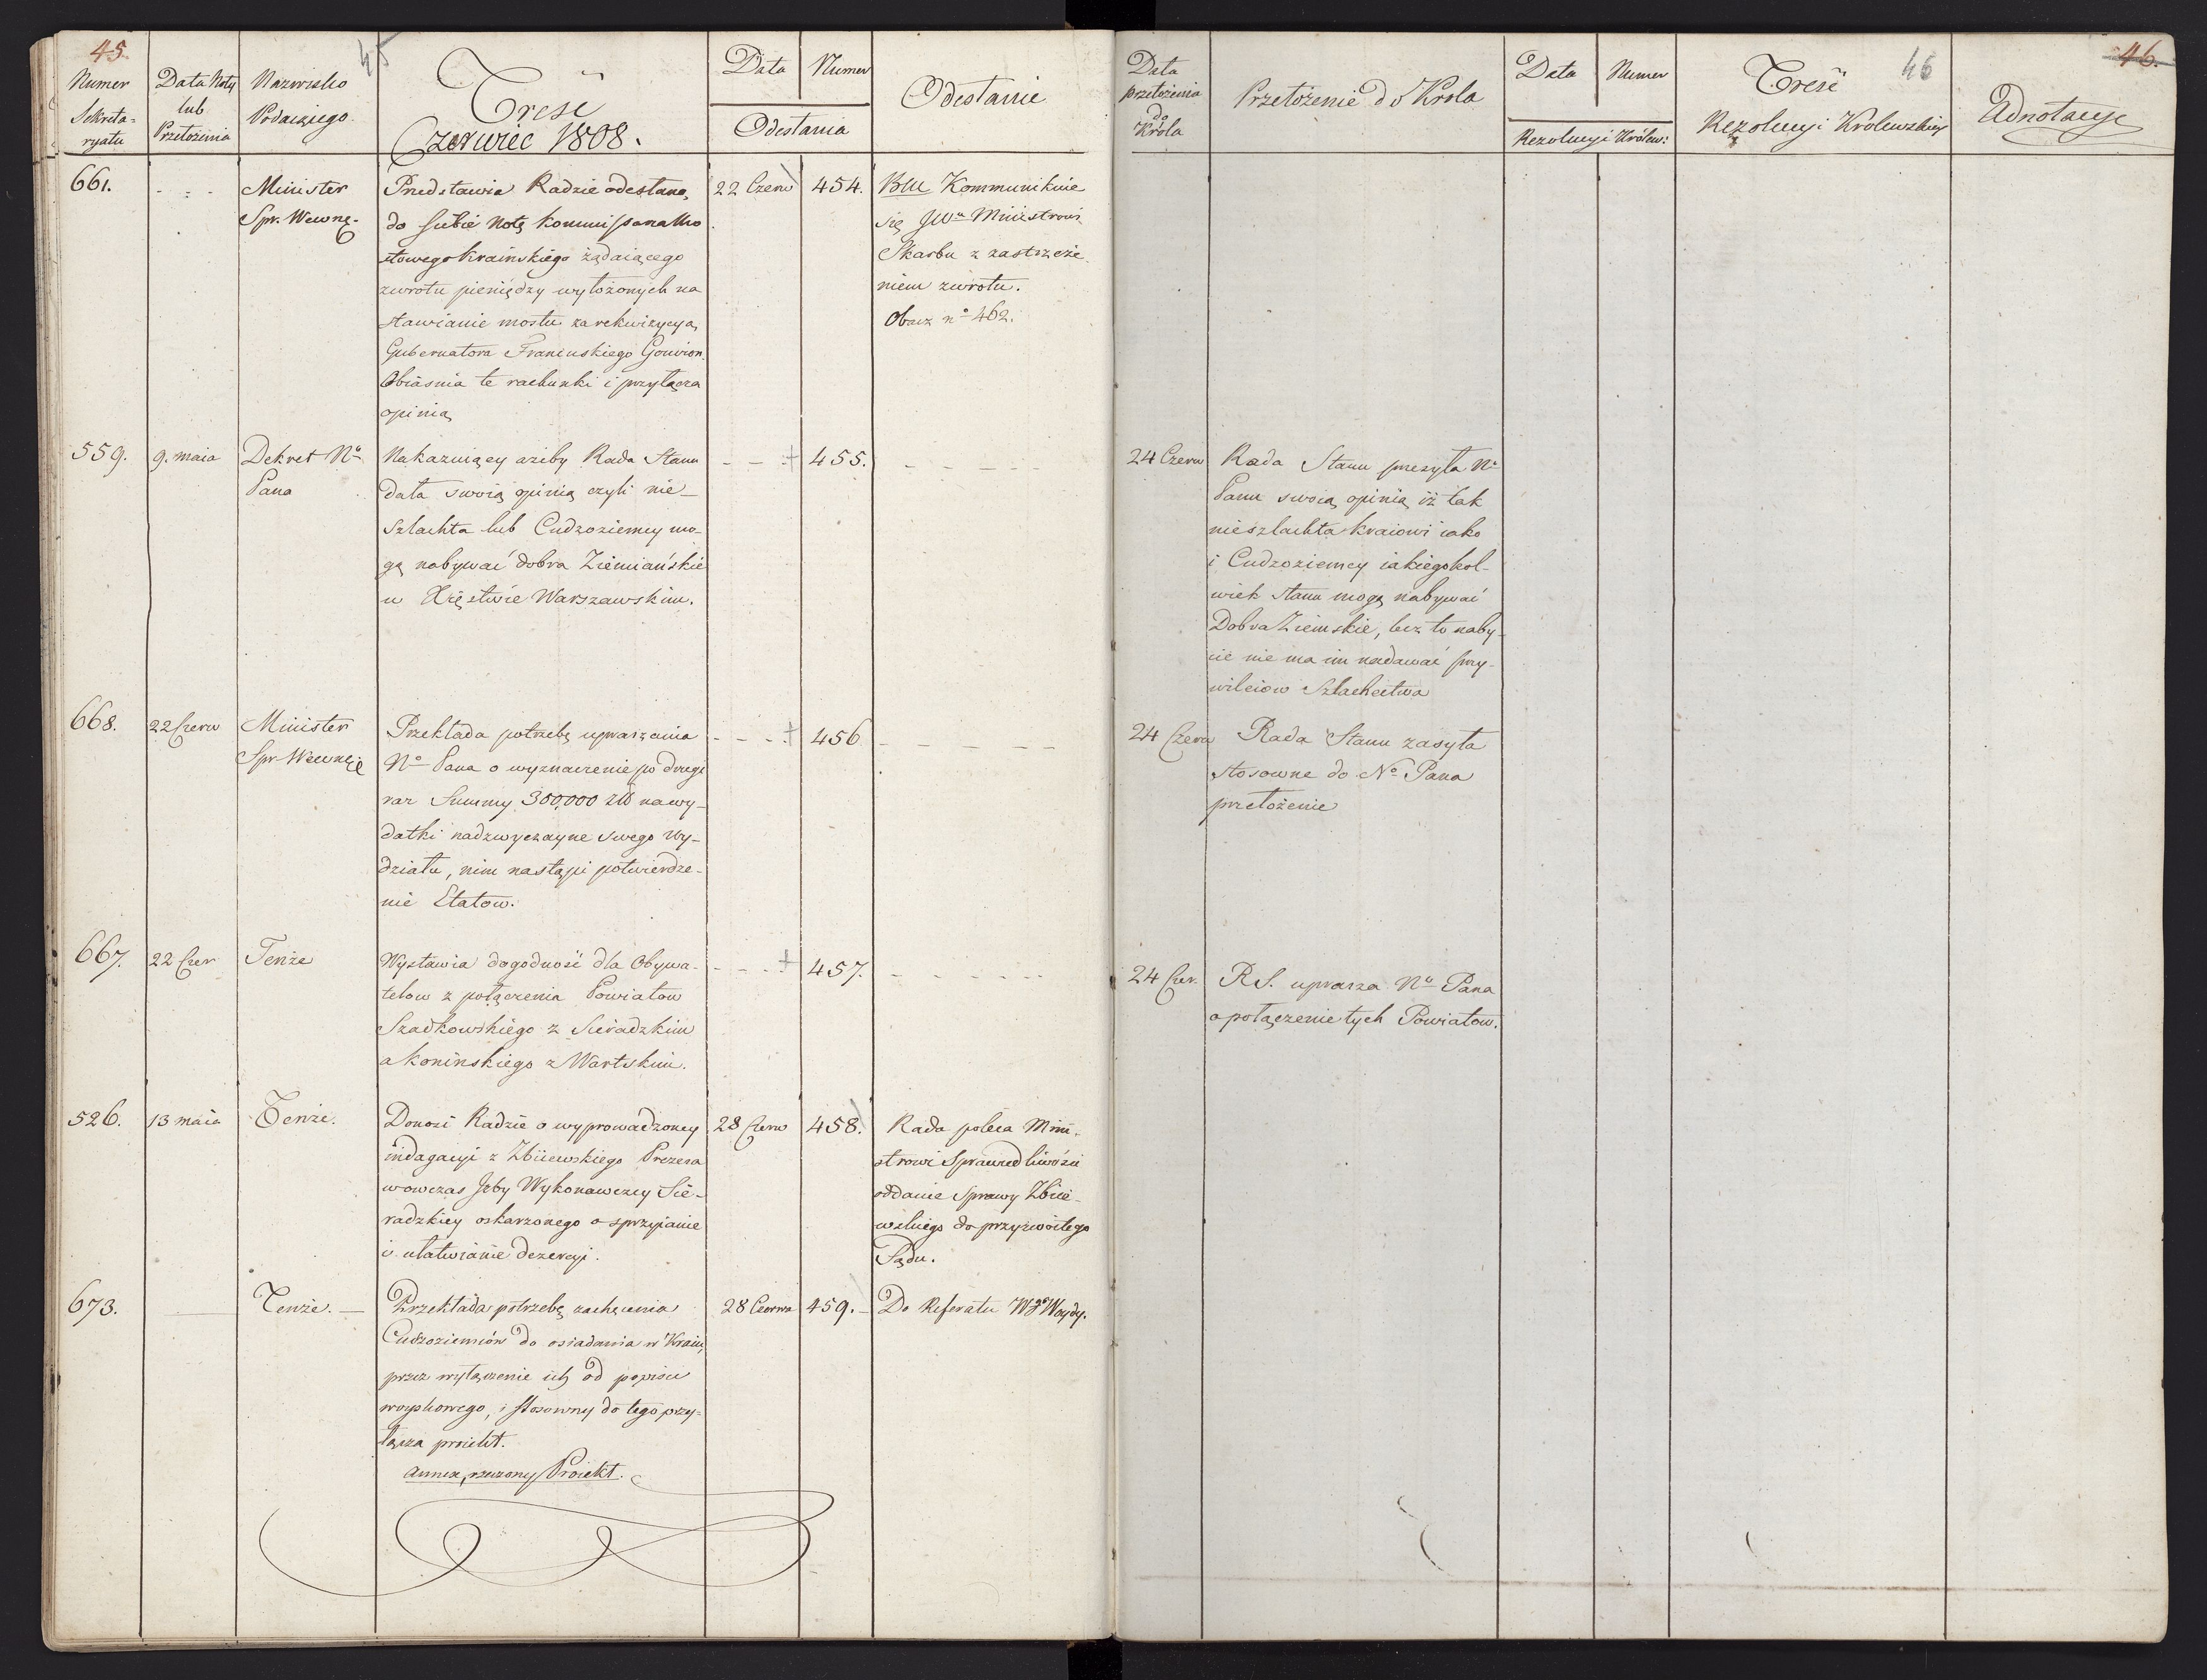 45.
45
Numer
Sekreta=
ryatu
Data Noty
lub
Przełożenia
Nazwisko
Podaiącego.
Treść
Czerwiec 1808.
Data
Numer
Odesłania
Odesłanie
661.
Minister
Spr. Wewnę.
Przedstawia Radzie odesłaną
do siebie Notę Kommissarza Mo
stowego Kraińskiego żądaiącego
zwrotu pieniędzy wyłożonych na
stawianie mostu za rekwizycyą
Gubernatora Francuskiego Gouvion.
Obiaśnia te rachunki i przyłącza
opinią
22 Czerw
454.
Kommunikuie
się JWu Ministrowi
Skarbu z zastrzeże
niem zwrotu.
Obacz no 462.
559.
9. maia
Dekret No
Pana
Nakazuiący ażeby Rada Stanu
dała swoią opinią czyli nie-
szlachta lub Cudzoziemcy mo-
gą nabywać dobra Ziemiańskie
w Xięstwie Warszawskim.
- - - +
455.
- - - - -
668.
22 Czerw
Minister
Spr. Wewnęe
Przekłada potrzebę upraszania
No Pana o wyznaczenie po drugi
raz Summy 300,000 zło na wy-
datki nadzwyczayne swego Wy-
działu, nim nastąpi potwierdze-
nie Etatow.
- - - +
456
- - - - -
667.
22 Czer
Tenże
Wystawia dogodność dla Obywa-
telow z połączenia Powiatow
Szadkowskiego z Sieradzkim
a Konińskiego z Wartskim.
- - - +
457.
- - - - -
526.
13 maia
Tenże.
Donosi Radzie o wyprowadzoney
indagacyi z Zbiiewskiego Prezesa
wowczas Izby Wykonawczey Sie-
radzkiey oskarżonego o sprzyianie
i ułatwianie dezercyi.
28 Czerw
458.
Rada poleca Mini-
strowi Sprawiedliwości
oddanie Sprawy Zbiie-
wskiego do przyzwoitego
Sądu.
673.
Tenże. -
Przekłada potrzebę zachęcenia
Cudzoziemców do osiadania w Kraiu,
przez wyłączenie ich od popisu
woyskowego, i stosowny do tego przy=
łącza proiekt.
Annex, rzeczony Proiekt.
28 Czerwca
459. -
Do Referatu WJo Woydy.
46
46.
Data
przełożenia
do
Króla
Przełożenie do Krola
Data
Numer
Rezolucyi Królew:
Treść
Rezolucyi Krolewskiey
Adnotacye
24 Czerw
Rada Stanu przesyła No
Panu swoią opinią iż tak
nieszlachta kraiowi iako
i Cudzoziemcy iakiegokol-
wiek stanu mogą nabywać
Dobra Ziemskie, lecz to naby-
cie nie ma im nadawać przy-
wileiow Szlachectwa
24 Czerw
Rada Stanu zasyła
stosowne do No Pana
przełożenie
24 Czer.
R S. uprasza No Pana
o połączenie tych Powiatow.